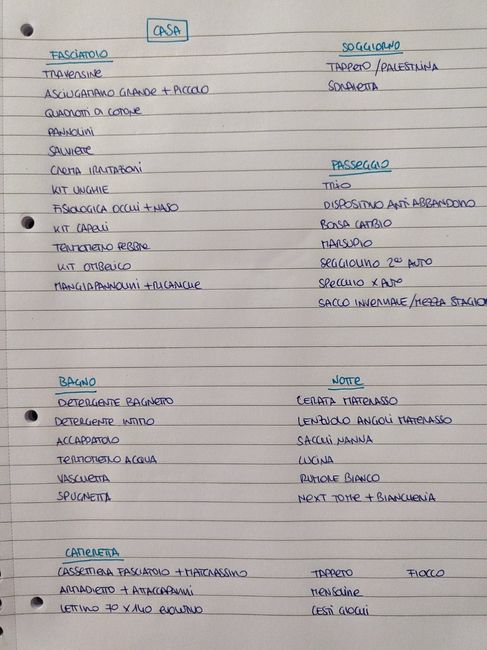 CASA
FASCIATOIO
TRAVERSINE
ASCIUGAMANO GRANDE + PICCOLO
QUADROTTI DI COTONE
PANNOLINI
SALVIETTE
CREMA IRRITAZIONI
KIT UNGHIE
FISIOLOGICA OCCHI + NASO
KIT CAPELLI
TERMOMETRO FEBBRE
KIT OMBELICO
MANGIAPANNOLINI + RICARICHE
SOGGIORNO
TAPPETO / PALESTRINA
SDRAIETTA
PASSEGGIO
TRIO
DISPOSITIVO ANTI ABBANDONO
BORSA CAMBIO
MARSUPIO
SEGGIOLINO 2ª AUTO
SPECCHIO X AUTO
SACCO INVERNALE/MEZZA STAGION
BAGNO
DETERGENTE BAGNETTO
DETERGENTE INTIMO
ACCAPPATOIO
TERMOMETRO ACQUA
VASCHETTA
SPUGNETTA
NOTTE
CERATA MATERASSO
LENZUOLO ANGOLI MATERASSO
SACCHI NANNA
LUCINA
RUMORE BIANCO
NEXT TO ME + BIANCHERIA
CAMERETTA
CASSETTIERA FASCIATOIO + MATERASSINO
ARMADIETTO + ATTACCAPANNI
LETTINO 70 X 140 EVOLUTIVO
TAPPETO FIOCCO
MENSOLINE
CESTI GIOCHI